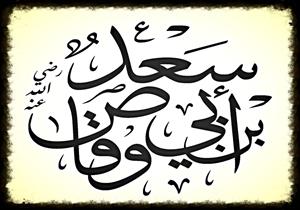 سَعْد
بن أبي وقاص
رضي الله عنه